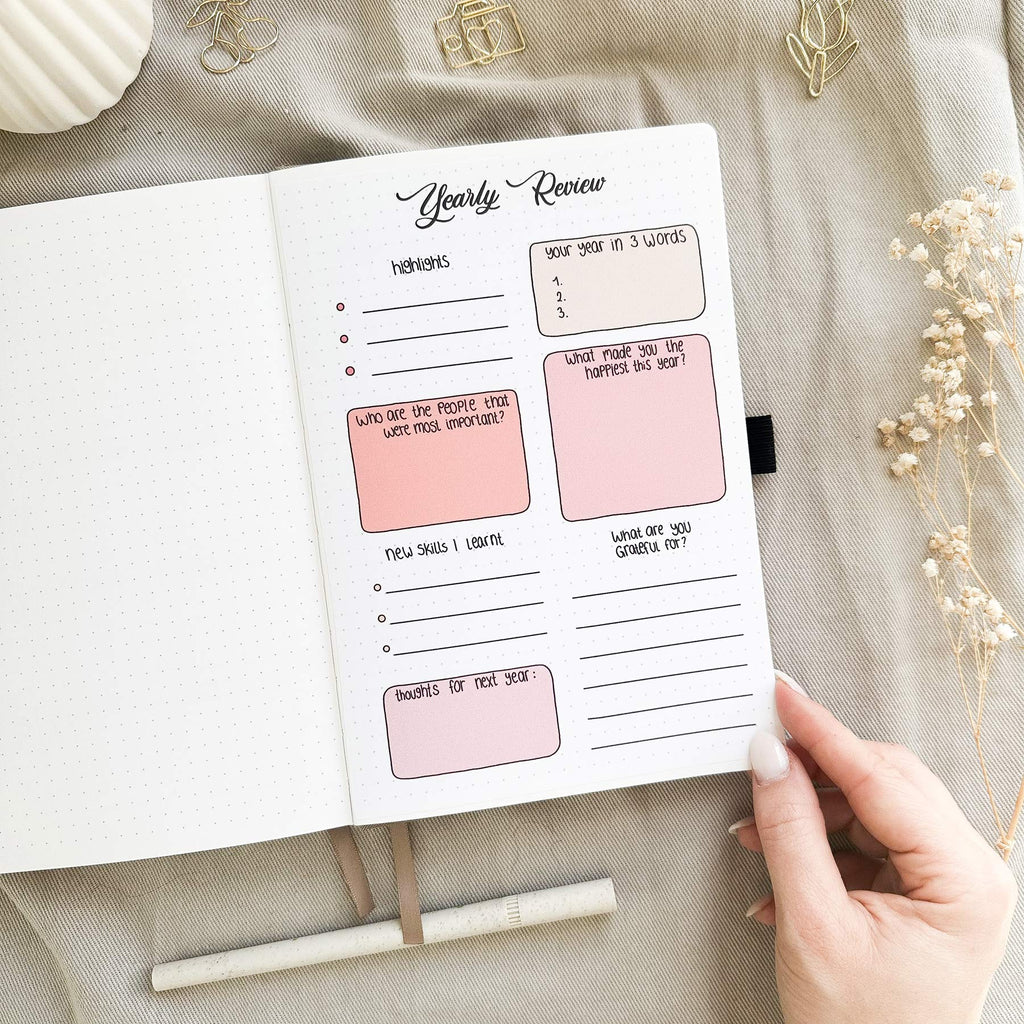 Yearly Review
highlights
your year in 3 words
1.
2.
3.
What made you the
happiest this year?
Who are the people that
were most important?
new skills I learnt
What are you
Grateful for?
thoughts for next year: